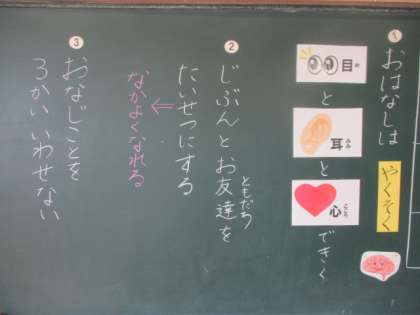 やくそく
①
おはなしは
目 め
と
耳 みみ
と
心 こころ
できく
②
じぶんとお友達を
ともだち
たいせつにする
⇐
なかよくなれる
③
おなじことを
3かいいわせない